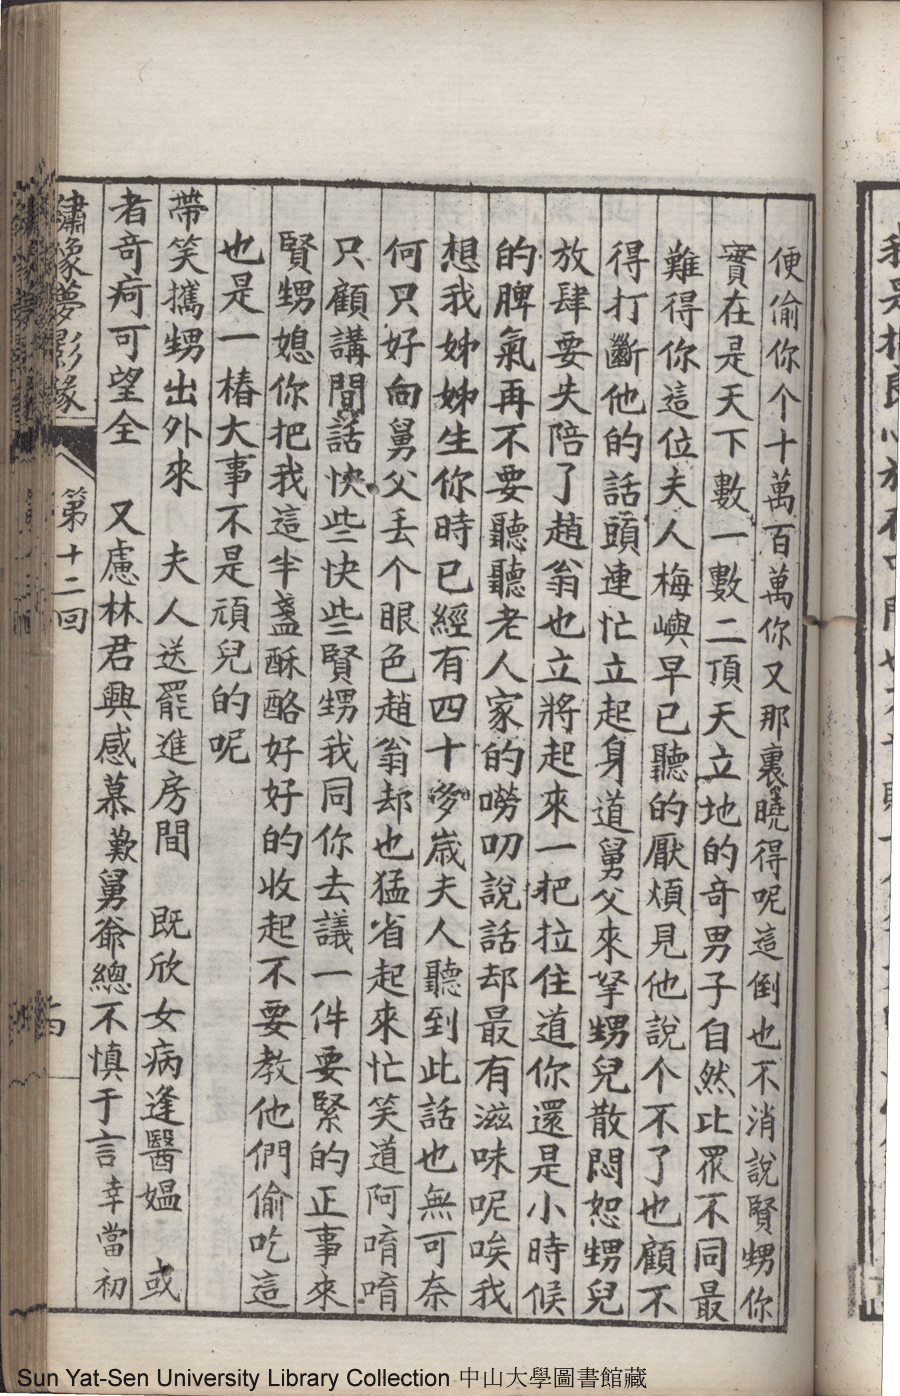 便偷你个十萬百萬你又那裏曉得呢這倒也不消說賢甥你
實在是天下數一數二頂天立地的奇男子自然比眾不同最
難得你這位夫人梅嶼早已聽的厭煩見他說个不了也顧不
得打斷他的話頭連忙立起身道舅父來孥甥兒散悶恕甥兒
放肆要失陪了趙翁也立將起來一把拉住道你還是小時候
的脾氣再不要聽聽老人家的嘮叨說話却最有滋味呢唉我
想我姊姊生你時已經有四十多歲夫人聽到此話也無可奈
何只好向舅父丟个眼色趙翁却也猛省起來忙笑道阿唷唷
只顧講閒話快些快些賢甥我同你去議一件要緊的正事來
賢甥媳你把我這半盞酥酪好好的收起不要教他們偷吃這
也是一樁大事不是頑兒的呢
帶笑攜甥出外來 夫人送罷進房間 既欣女病逢醫媼 或
者奇疴可望全 又慮林君興感慕歎舅爺總不慎于言幸當初
繡像夢影緣
第十二回
Sun Yat-Sen University Library Collection 中山大學圖書館藏